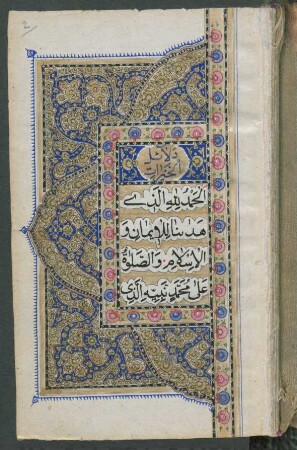 دلائل
الخيرات
الحمد لله الذي
هدينا للايمان و
الاسلام والصلوة
على محمد نبيه الذي